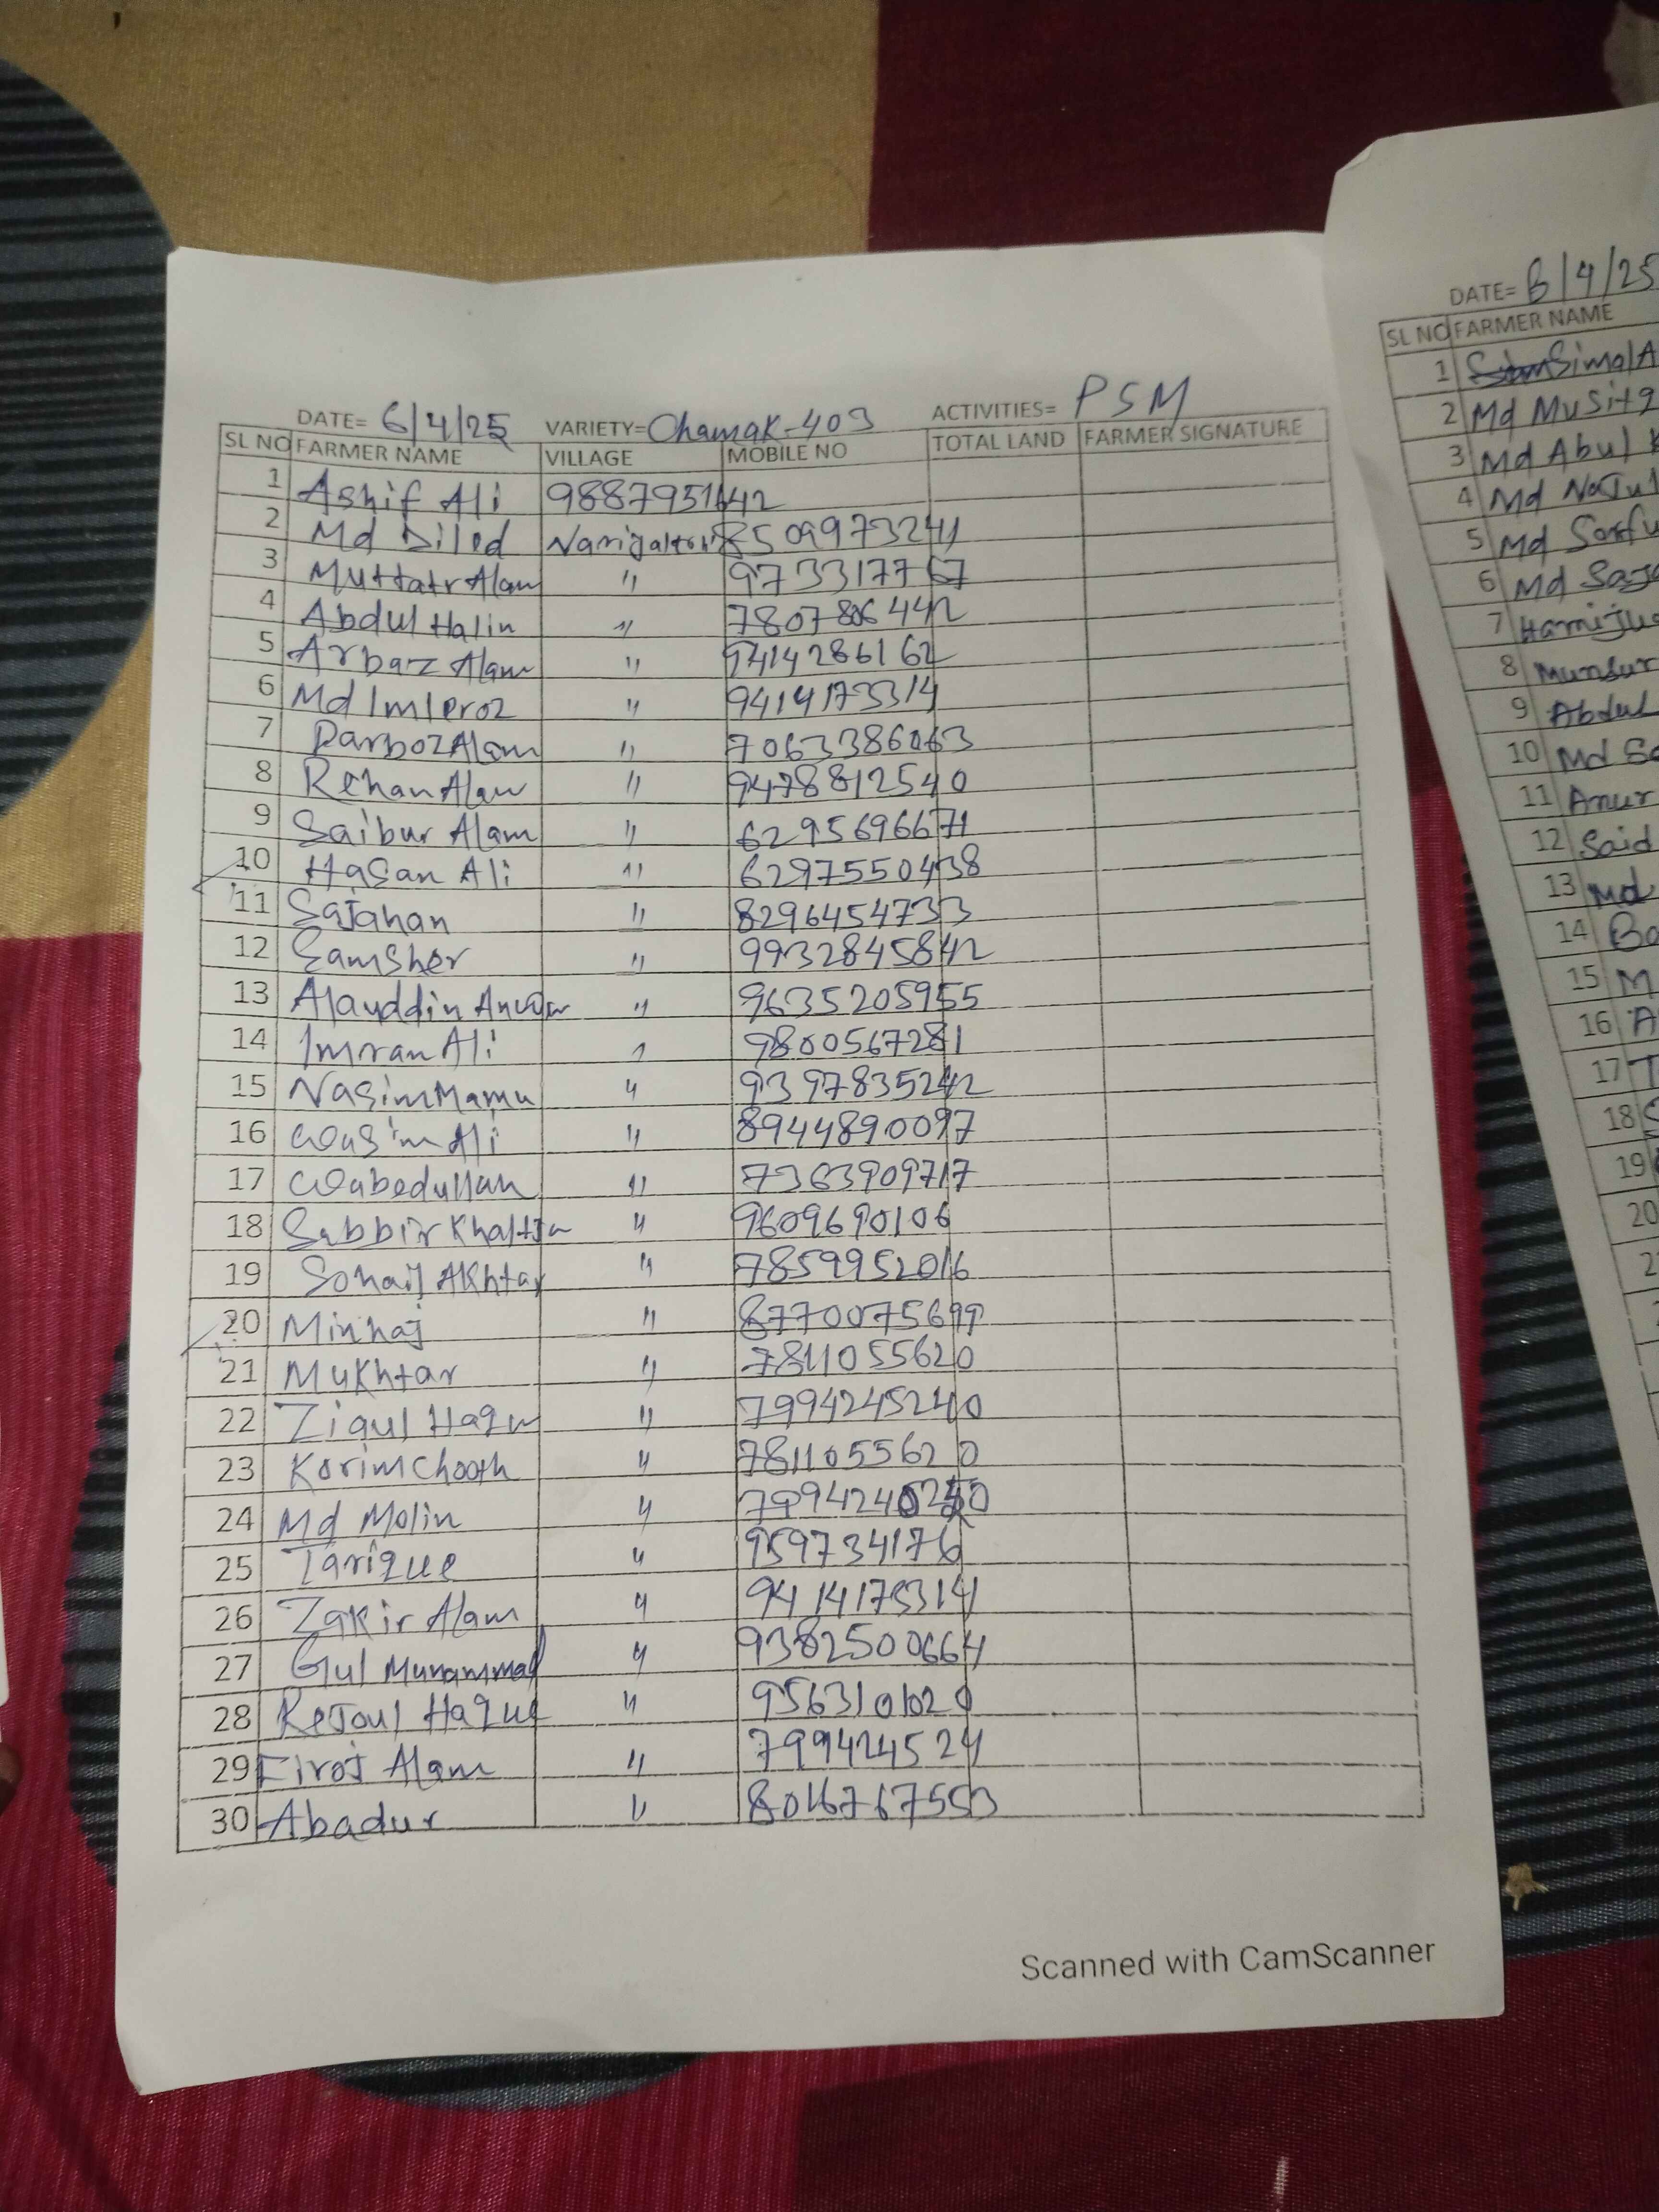 DATE= 6/4/25 VARIETY=Chamak-403 ACTIVITIES= PSM
SL NO FARMER NAME VILLAGE MOBILE NO TOTAL LAND FARMER SIGNATURE
1 Ashif Ali 9887951642
2 Md 8509973241
3 Alam " 9733177 67
4 Abdul Halin " 7807806442
5 Arbaz Alam " 9414286162
6 Md Imleroz " 9414173314
7 Alam " 7063386063
8 Rehan Alam " 9478812540
9 Saibur Alam " 6295696671
10 Hasan Ali " 6297550438
11 Sajahan " 8296454733
12 Samsher " 9932845842
13 Alauddin " 9635205955
14 Imran Ali " 9800567281
15 Nasim Mamu " 9397835242
16 Wasim Ali " 8944890097
17 Wabedullah " 7363909717
18 Sabbir " 9609690106
19 Sohail Akhtar " 7859952016
20 Minhaj " 8770075699
21 Mukhtar " 7811055620
22 Ziaul Haqu " 7994245240
23 Korim " 7811055620
24 Md Molin "
25 Tarique " 959734176
26 Zakir Alam " 9414175314
27 Gul Muhammad " 9382500664
28 Rejoul Haque " 9563101020
29 Firoj Alam " 799424524
30 Abadur " 8016767553
Scanned with CamScanner
DATE= 6/4/25
SL NO FARMER NAME
1
2 Md
3 Md Abul
4 Md
5 Md
6 Md
7
8
9 Abdul
10 Md
11
12 Said
13 Md
14
15
16
17
18
19
20